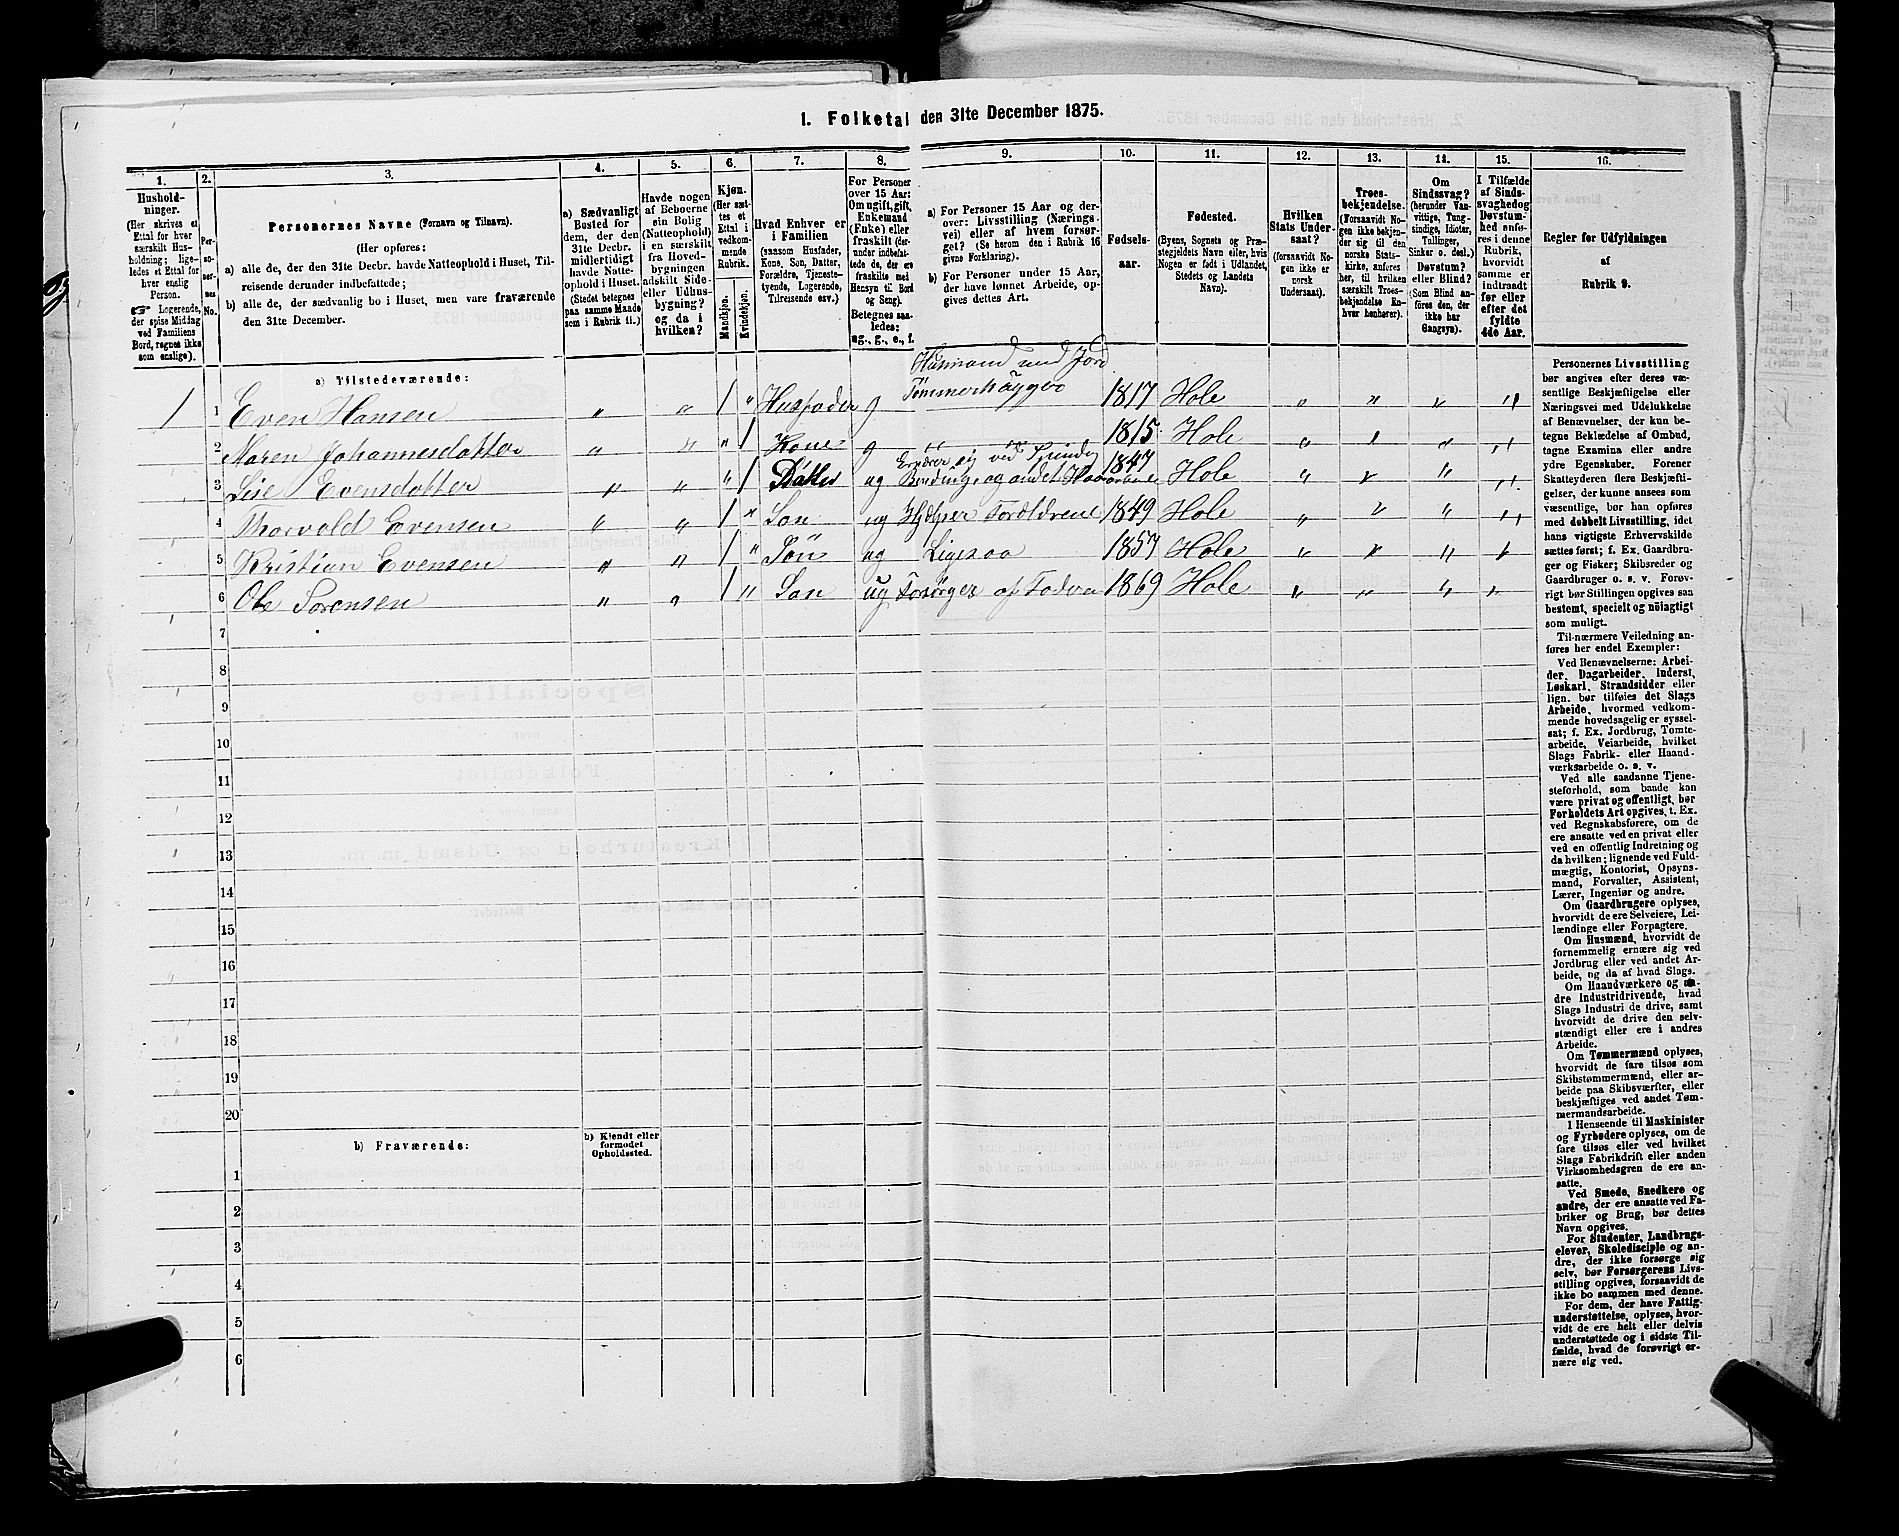 1. Folketal den 31te December 1875.
1. 2. 3. 4. 5. 6. 7. 8. 9. 10. 11. 12. 13. 14. 15. 16.
Hushold-
ninger.
(Her skrives et
Ettal for hver
særskilt Hus-
holdning; lige-
ledes et Ettal for
hver enslig
Person.
☞ Logerende,
der spise Middag
ved Familiens
Bord, regnes ikke
som enslige).
Per-
so-
ner-
nes
No.
Personernes Navne (Fornavn og Tilnavn).
(Her opføres:
a) alle de, der den 31te Decbr. havde Natteophold i Huset, Til-
reisende derunder indbefattede;
b) alle de, der sædvanlig bo i Huset, men vare fraværende
den 31te December.
a) Sædvanligt
Bosted for
dem, der den
31te Decbr.
midlertidigt
havde Natte-
ophold i Huset.
(Stedet betegnes
paa samme Maade
som i Rubrik 11.)
Havde nogen
af Beboerne
sin Bolig
(Natteophold)
i en særskilt
fra Hoved-
bygningen
adskilt Side-
eller Udhus-
bygning?
og da i
hvilken?
Kjøn.
(Her sæt-
tes et
Ettal i
vedkom-
mende
Rubrik.
Mandkjøn.
Kvindekjøn.
Hvad Enhver er
i Familien
(saasom Husfader,
Kone, Søn, Datter,
Forældre, Tjeneste-
tyende, Logerende,
Tilreisende osv.)
For Personer
over 15 Aar:
Om ugift, gift,
Enkemand
(Enke) eller
fraskilt (der-
under indbefat-
tede de, der ere
fraskilte med
Hensyn til Bord
og Seng).
Betegnes saa-
ledes:
ug., g., e., f.
a) For Personer 15 Aar og der-
over: Livsstilling (Nærings-
vei) eller af hvem forsør-
get? (Se herom den i Rubrik 16
givne Forklaring).
b) For Personer under 15 Aar,
der have lønnet Arbeide, op-
gives dettes Art.
Fødsels-
aar.
Fødested.
(Byens, Sognets og Præ-
stegjeldets Navn eller, hvis
Nogen er født i Udlandet,
Stedets og Landets
Navn).
Hvilken
Stats Under-
saat?
(forsaavidt No-
gen ikke er
norsk
Undersaat).
Troes-
bekjendelse.
(Forsaavidt No-
gen ikke bekjen-
der sig til den
norske Stats-
kirke, anføres
her, til hvilken
særskilt Troes-
bekjendelse En-
hver henhører).
Om
Sindssvag?
(herunder Van-
vittige, Tung-
sindige, Idioter,
Tullinger,
Sinker o. desl.)
Døvstum?
eller Blind?
(Som Blind an-
føres den, der
ikke har
Gangsyn).
I Tilfælde
af Sinds-
svaghed og
Døvstum-
hed anfø-
res i denne
Rubrik,
hvorvidt
samme er
indtraadt
før eller
efter det
fyldte
4de Aar.
Regler for Udfyldningen
af
Rubrik 9.
a) Tilstedeværende:
Husmand med Jord
1 1 Even Hansen " " 1 " Husfader g Tømmerhugger 1817 Hole " " " "
2 Maren Johannesdatter " " " 1 Kone g 1815 Hole " " " "
3 Lise Evensdatter " " " 1 Datter ug Ernærer sig ved Spinding 1847 Hole " " " "
Binding og andet Haandarbeide
4 Thorvald Evensen " " 1 " Søn ug Hjelper Forældrene 1849 Hole " " " "
5 Kristian Evensen " " 1 " Søn ug Ligesaa 1857 Hole " " " "
6 Ole Sørensen " " 1 " Søn ug Forsørges af 1869 Hole " " " "
7
8
9
10
11
12
13
14
15
16
17
18
19
20
b) Fraværende:
b) Kjendt eller
formodet
Opholdssted.
1
2
3
4
5
6
Personernes Livsstilling
bør angives efter deres væ-
sentlige Beskjæftigelse eller
Næringsvei med Udelukkelse
af Benævnelser, der kun be-
tegne Beklædelse af Ombud,
tagne Examina eller andre
ydre Egenskaber. Forener
Skatteyderen flere Beskjæfti-
gelser, der kunne ansees som
væsentlige, bør han opføres
med dobbelt Livsstilling, idet
hans vigtigste Erhvervskilde
sættes først; f. Ex. Gaardbru-
ger og Fisker; Skibsreder og
Gaardbruger o. s. v. Forøv-
rigt bør Stillingen opgives saa
bestemt, specielt og nøiagtigt
som muligt.
Til nærmere Veiledning an-
føres her endel Exempler:
Ved Benævnelserne: Arbei-
der, Dagarbeider, Inderst,
Løskarl, Strandsidder eller
lign. bør tilføies det Slags
Arbeide, hvormed vedkom-
mende hovedsagelig er syssel-
sat; f. Ex. Jordbrug, Tømte-
arbeide, Veiarbeide, hvilket
Slags Fabrik- eller Haand-
værksarbeide o. s. v.
Ved alle saadanne Tjene-
steforhold, som baade kan
være privat og offentligt, bør
Forholdets Art opgives, t. Ex.
ved Regnskabsførere, om de
ere ansatte ved en privat eller
ved en offentlig Indretning og
da hvilken; lignende ved Fuld-
mægtig, Kontorist, Opsyns-
mand, Forvalter, Assistent,
Lærer, Ingeniør og andre.
Om Gaardbrugere oplyses,
hvorvidt de ere Selveiere, Lei-
lændinge eller Forpagtere.
Om Husmænd, hvorvidt de
fornemmelig ernære sig ved
Jordbrug eller ved andet Ar-
beide, og da af hvad Slags.
Om Haandværkere og an-
dre Industridrivende, hvad
Slags Industri de drive, samt
hvorvidt de drive den selv-
stændigt eller ere i andres
Arbeide.
Om Tømmermænd oplyses,
hvorvidt de fare tilsøs som
Skibstømmermænd, eller ar-
beide paa Skibsværfter, eller
beskjæftiges ved andet Tøm-
mermandsarbeide.
I Henseende til Maskinister
og Fyrbødere oplyses, om de
fare tilsøs eller ved hvilket
Slags Fabrikdrift eller anden
Virksomhedsgren de ere an-
satte.
Ved Smede, Snedkere og
andre, der ere ansatte ved Fa-
briker og Brug, bør dettes
Navn opgives.
For Studenter, Landbrugs-
elever, Skoledisciple og an-
dre, der ikke forsørge sig
selv, bør Forsørgerens Livs-
stilling opgives, forsaavidt de
ikke bo sammen med denne.
For dem, der have Fattig-
understøttelse, oplyses, hvor-
vidt de ere helt eller delvis
understøttede og i sidste Til-
fælde, hvad de forøvrigt er-
nære sig ved.